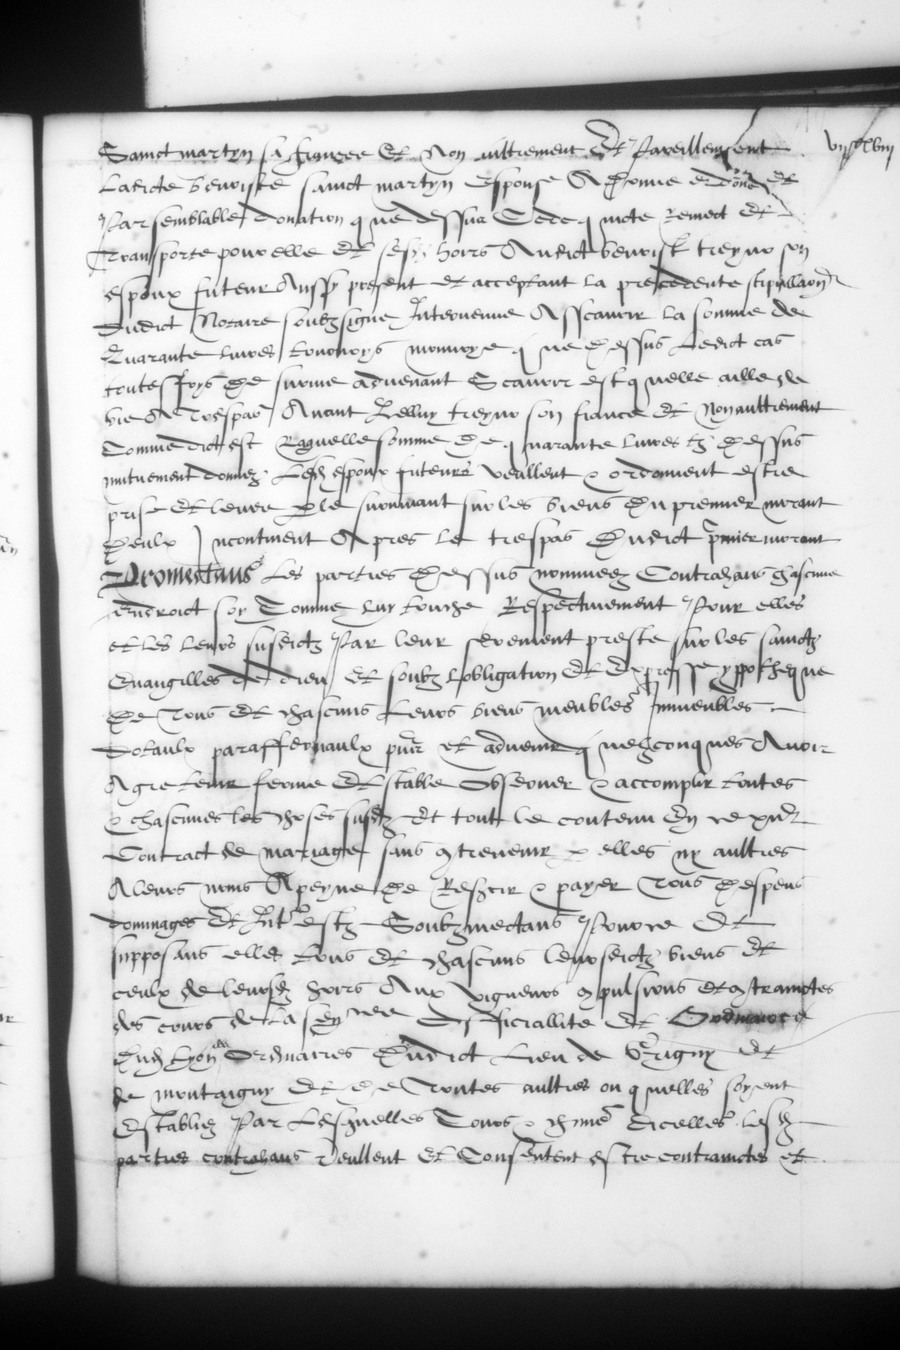 Sainct martyn sa fiancee Et Non aultrement Et Pareillement
Ladicte benoiste sainct martyn espouse A donne et donne et
Par semblable donation que dessus Cede quicte Remect Et
Transporte pour elle Et ses hoirs Audict benoist treyno son
espoux futeur Aussy present et acceptant la precedente stipullaon
dudict Notaire soubzsigne Intervenue Asscavoir la somme de
Quarante livres tournoys monnoye que dessus Ledict cas
toutesfoys de survie advenant Scavoir est quelle aille de
vie A Trespas Avant Icelluy treyno son fiance Et Non aultrement
Comme dict est Laquelle somme de quarante livres tz dessus
mutuement donnez Lesd espoux futeurs veullent & ordonnent estre
prise Et levee p le survivant sur les biens du premier morant
deulx Incontinent Apres le trespas Dudict pmier morant
Promectans Les parties dessus nommees Contrahans chascune
Endroict soy Comme luy touche Respectivement Pour elles
et les leurs susdictz Par leur serement preste sur les sainctz
Evangilles de dieu Et soubz lobligation Et expresse yppotheque
De Tous Et chascuns Leurs biens meubles Immeubles
Dotaulx paraffernaulx pns et advenir quelzconques Avoir
Agreable ferme Et stable Observer & accomplir toutes
& chascunes les choses susd Et tout le contenu En ce pnt
Contract de mariage sans contrevenir p elles ny aultres
A leurs noms A peyne De Refzcir & payer Tous despens
dommages Et Interestz Soubzmectans Pource Et
supposans elles tous Et chascuns leursdictz biens Et
ceulx de leursd hoirs Aux vigueurs compulsions et contrainctes
des cours de La sen
Dud Lyon Ordinaires Dudict Lieu de Et
de montaigny Et De Toutes aultres ou quelles soyent
Establies Par Lesquelles Cours & chune dicelles lesd
parties contrahans Veullent Et Consentent estre contrainctes et